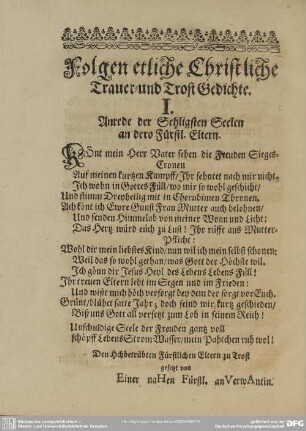 Folgen etliche Christliche
Trauer und Trost Gedichte.
I.
Anrede der Sehligsten Seelen
an dero Fürstl. Eltern.
KÖnt mein Herr Vater sehen die Freuden Sieges-
Cronen
Auf meinen kurtzen Kampff/ Ihr sehntet nach mir nicht.
Ich wohn in Gottes Füll/ wo mir so wohl geschicht/
Und stimm Dreyheilig mit in Cherubinen Thronen.
Ach könt ich Ewre Gunst Frau Mutter auch belohnen/
Und senden Himmelab von meiner Wonn und Licht;
Das Hertz würd euch zu Lust! Ihr rüfft aus Mutter-
Pflicht:
Wohl dir mein liebstes Kind/ nun wil ich mein selbst schonen;
Weil das so wohl gethan/ was Gott der Höchste wil.
Ich gönn dir Jesus Heyl des Lebens Lebens Füll!
Ihr treuen Eltern lebt im Segen und im Frieden:
Und wißt mich höch versorgt bey dem der sorgt vor Euch.
Grünt/ blühet satte Jahr; doch seind wir kurtz geschieden/
Biß uns Gott all versetzt zum Lob in seinem Reich!
Unschuldige Seele der Freuden gantz voll
schöpff Lebens Strom Wasser/ mein Pahtchen ruh wol!
Den Hochbetrübten Fürstlichen Eltern zu Trost
gesetzt von
Einer naHen Fürstl. anVerwAntin.